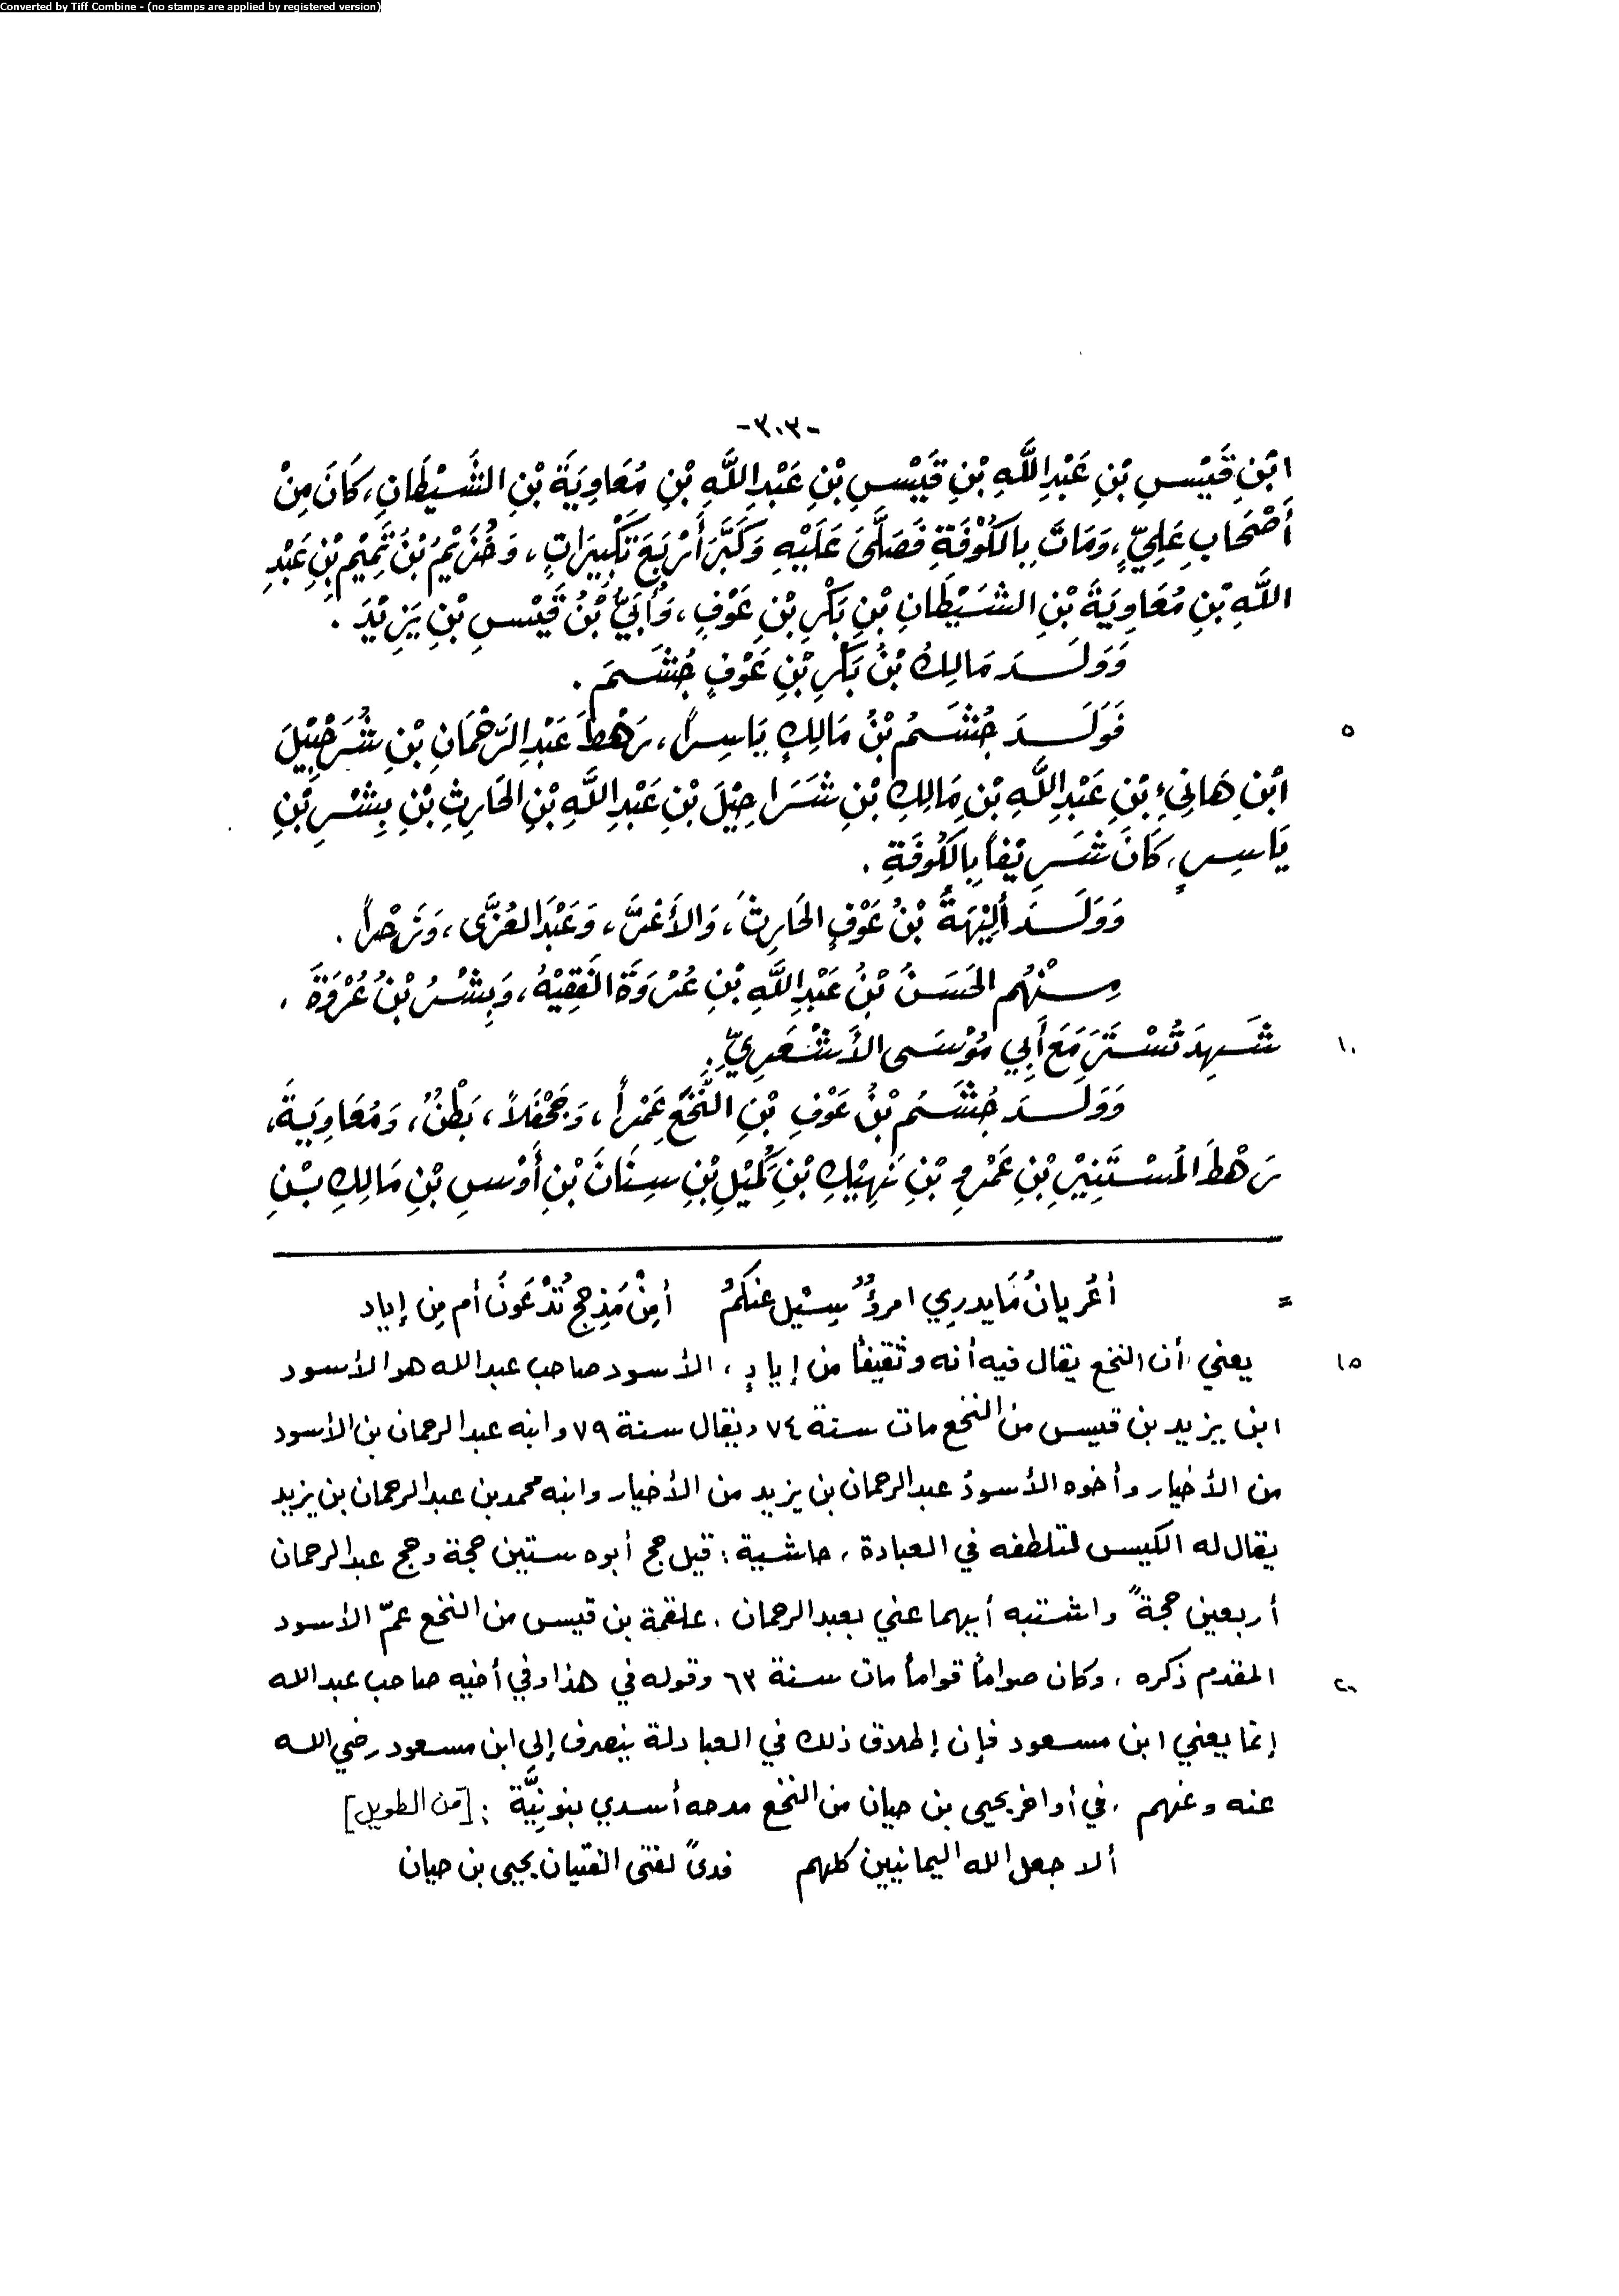 Converted by Tiff Combine - (no stamps are applied by registered version)
-٣٠٣-
ابْنِ قَيْسِ بْنِ عَبْدِ اللَّهِ بْنِ قَيْسِ بْنِ عَبْدِ اللَّهِ بْنِ مُعَاوِيَةَ بْنِ الشَّيْطَانِ، كَانَ مِنْ
أَصْحَابِ عَلِيٍّ، وَمَاتَ بِالكُوْفَةِ فَصَلَّى عَلَيْهِ وَكَبَّرَ أَرْبَعَ تَكْبِيرَاتٍ، وَخُزَيْمُ بْنُ تَمِيْمِ بْنِ عَبْدِ
اللَّهِ بْنِ مُعَاوِيَةَ بْنِ الشَّيْطَانِ بْنِ بَكْرِ بْنِ عَوْفٍ، وَأُبَيُّ بْنُ قَيْسِ بْنِ يَزِيْدَ .
وَوَلَدَ مَالِكُ بْنُ بَكْرِ بْنِ عَوْفٍ جُشَمَ .
فَوَلَدَ جُشَمُ بْنُ مَالِكٍ يَاسِراً، رَهْطَ عَبْدِ الرَّحْمَانِ بْنِ شُرَحْبِيْلَ ٥
ابْنِ هَانِئِ بْنِ عَبْدِ اللَّهِ بْنِ مَالِكِ بْنِ شَرَاحِيْلَ بْنِ عَبْدِ اللَّهِ بْنِ الحَارِثِ بْنِ بِشْرِ بْنِ
يَاسِرٍ، كَانَ شَرِيْفاً بِالكُوفَةِ .
وَوَلَدَ أَلِيْهَةُ بْنُ عَوْفٍ الحَارِثَ، وَالأَعْرَ، وَعَبْدَ العُزَّى، وَزَحْراً .
مِنْهُم الحَسَنُ بْنُ عَبْدِ اللَّهِ بْنِ عُرْوَةَ الفَقِيْهُ، وَبِشْرُ بْنُ عُرْوَةَ ،
شَهِدَ تُسْتَرَ مَعَ أَبِي مُوْسَى الأَشْعَرِيِّ . ١٠
وَوَلَدَ جُشَمُ بْنُ عَوْفِ بْنِ النَّخَعِ عَمْراً، وَجَحْفَلاً، بَطْنٌ، وَمُعَاوِيَةَ،
رَهْطَ المُسْتَنِيْرِ بْنِ عَمْرِو بْنِ نَهِيْكِ بْنِ كُمَيْلِ بْنِ سِنَانَ بْنِ أَوْسِ بْنِ مَالِكِ بْنِ
= أعُريانُ مَا يدرِي امرؤٌ سِيْلَ عنكمُ أمِنْ مَذحجٍ تُدْعَونَ أم مِن إياد
يعني أن النخع يقال فيه أنه وثقيفاً من إيادٍ، الأسود صاحب عبدالله هو الأسود ١٥
ابن يزيد بن قيس من النخع مات سنة ٧٤ ويقال سنة ٧٩ وابنه عبدالرحمان بن الأسود
من الأخيار وأخوه الأسودُ عبدالرحمان بن يزيد من الأخيار وابنه محمد بن عبدالرحمان بن يزيد
يقال له الكيس لتلطفه في العبادة، حاشية: قيل حج أبوه ستين حجة وحج عبدالرحمان
أربعين حجةً واشتبه أيهما عني بعبدالرحمان. علقمة بن قيس من النخع عمّ الأسود
المقدم ذكره، وكان صواماً قواماً مات سنة ٦٣ وقوله في هذا وفي أخيه صاحب عبدالله ٢٠
إنما يعني ابن مسعود فإن إطلاق ذلك في العبادلة ينصرف إلى ابن مسعود رضي الله
عنه وعنهم . في أواخر يحيى بن حيان من النخع مدحه أسدي بنونيَّة : [من الطويل]
ألا جعل الله اليمانيين كلهم فدىً لفتى الفتيان يحيى بن حيان